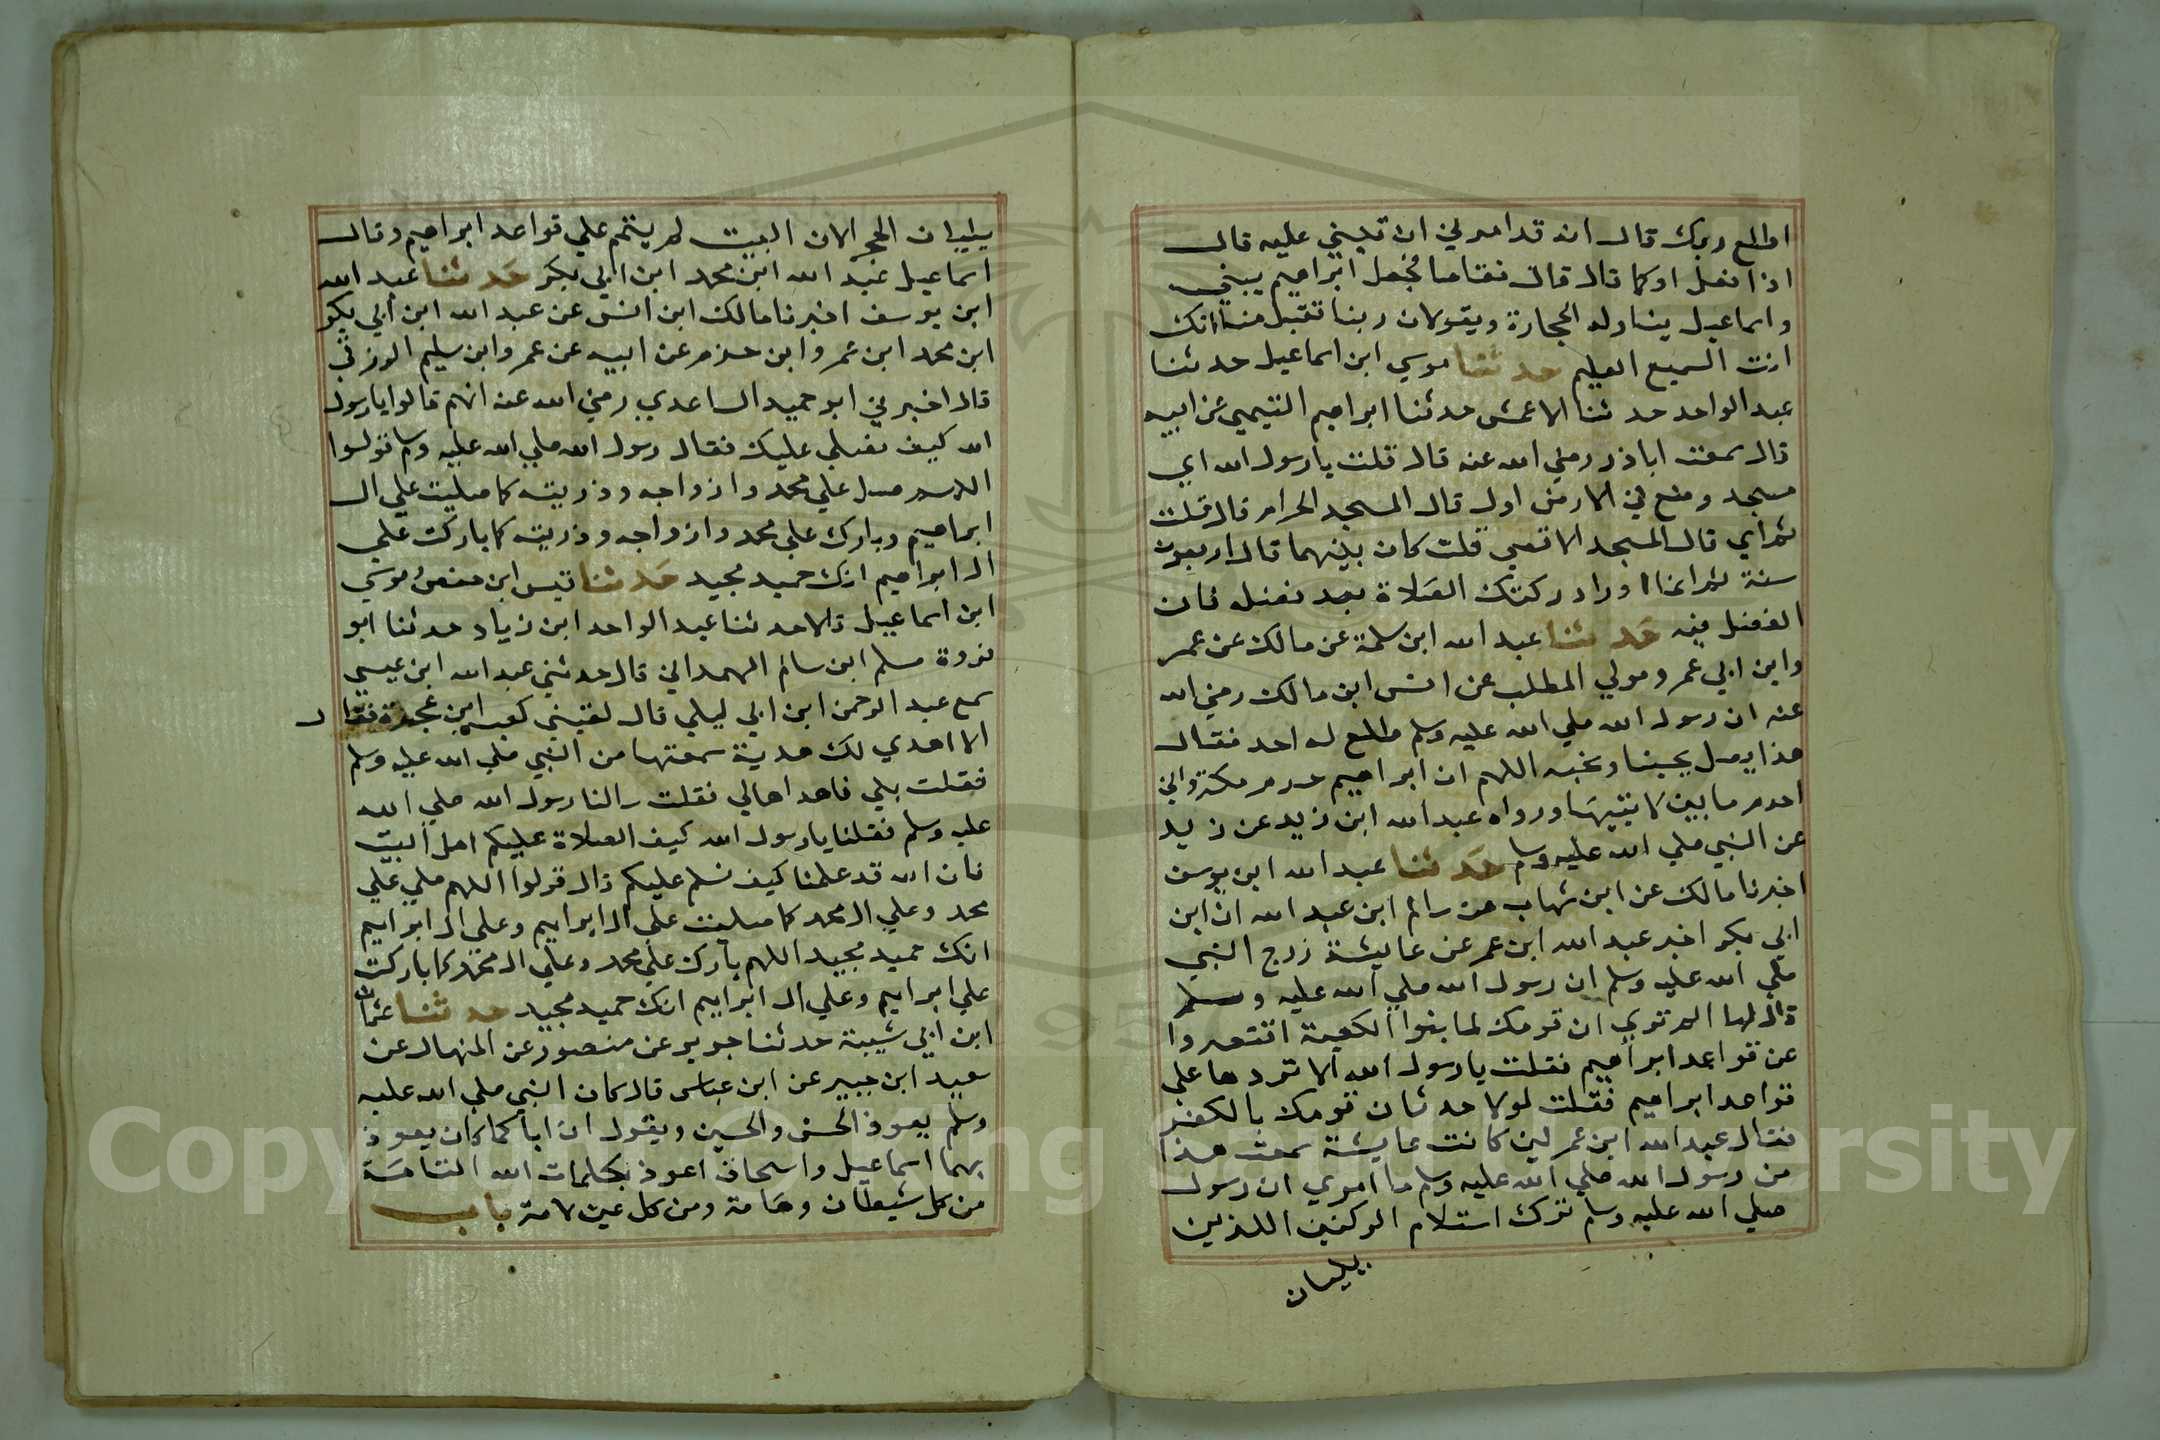 اطع ربك قال انه قد امرني ان تعينني عليه قال
اذا افعل او كما قال قال فقاما فجعل ابراهيم يبني
واسماعيل يناوله الحجارة ويقولان ربنا تقبل منا انك
انت السميع العليم حدثنا موسي ابن اسماعيل حدثنا
عبد الواحد حدثنا الاعمش حدثنا ابراهيم التيمي عن ابيه
قال سمعت اباذر رضي الله عنه قال قلت يا رسول الله اي
مسجد وضع في الارض اول قال المسجد الحرام قال قلت
ثم اي قال المسجد الاقصي قلت كان بينهما قال اربعون
سنة ثم اينما اوراد ركتك الصلاة بعد فصله فان
الفضل فيه حدثنا عبد الله ابن سلمة عن مالك عن عمر
وابن ابي عمرو مولي المطلب عن انس ابن مالك رضي الله
عنه ان رسول الله صلي الله عليه وسلم طلع له احد فقال
هذا يصل يحبنا ونحبه اللهم ان ابراهيم حرم مكة واني
احرم ما بين لابتيها ورواه عبد الله ابن زيد عن زيد
عن النبي صلي الله عليه وسلم حدثنا عبد الله ابن يوسف
اخبرنا مالك عن ابن شهاب عن سالم ابن عبد الله ان ابن
ابي بكر اخبر عبد الله ابن عمر عن عايشة زوج النبي
صلي الله عليه وسلم ان رسول الله صلي الله عليه وسلم
قال لها الم تري ان قومك لما بنوا الكعبة اقتصروا
عن قواعد ابراهيم فقلت يا رسول الله الا تردها علي
قواعد ابراهيم فقلت لولا حدثان قومك بالكفر
فقال عبد الله ابن عمر لين كانت عايشة سمعت هذا
من رسول الله صلي الله عليه وسلم ما اموي ان رسول
صلي الله عليه وسلم ترك استلام الركنين اللذين
يليان
يليان الحجر الان البيت لم يتم علي قواعد ابراهيم وقال
اسماعيل عبد الله ابن محمد ابن ابي بكر حدثنا عبد الله
ابن يوسف اخبرنا مالك ابن انس عن عبد الله ابن ابي بكر
ابن محمد ابن عمرو ابن حزم عن ابيه عن عمرو ابن سليم الورزقي
قال اخبرني ابو حميد الساعدي رضي الله عنه انهم قالوا يا رسول
الله كيف نصلي عليك فقال رسول الله صلي الله عليه وسلم قولوا
اللهم صل علي محمد وازواجه وذريته كما صليت علي ال
ابراهيم وبارك علي محمد وازواجه وذريته كما باركت علي
ال ابراهيم انك حميد مجيد حدثنا قيس ابن حفص وموسي
ابن اسماعيل قالا حدثنا عبد الواحد ابن زياد حدثنا ابو
فروة مسلم ابن سالم الهمداني قال حدثني عبد الله ابن عيسي
سمع عبد الرحمن ابن ابي ليلي قال لقيني كعب ابن عجرة فقال
الا اهدي لك هدية سمعتها من النبي صلي الله عليه وسلم
فقلت بلي فاهداها لي فقلت سالنا رسول الله صلي الله
عليه وسلم فقلنا يا رسول الله كيف الصلاة عليكم اهل البيت
فان الله قد علمنا كيف نسلم عليكم قال قولوا اللهم صلي علي
محمد وعلي ال محمد كما صليت علي ال ابراهيم وعلي ال ابراهيم
انك حميد مجيد اللهم بارك علي محمد وعلي ال محمد كما باركت
علي ابراهيم وعلي ال ابراهيم انك حميد مجيد حدثنا عثمان
ابن ابي شيبة حدثنا جرير عن منصور عن المنهال عن
سعيد ابن جبير عن ابن عباس قال كان النبي صلي الله عليه
وسلم يعوذ الحسن والحسين ويقول ان اباكما كان يعوذ
بهما اسماعيل واسحاق اعوذ بكلمات الله التامة
من كل شيطان وهامة ومن كل عين لامة باب
Copyright © King Saud University